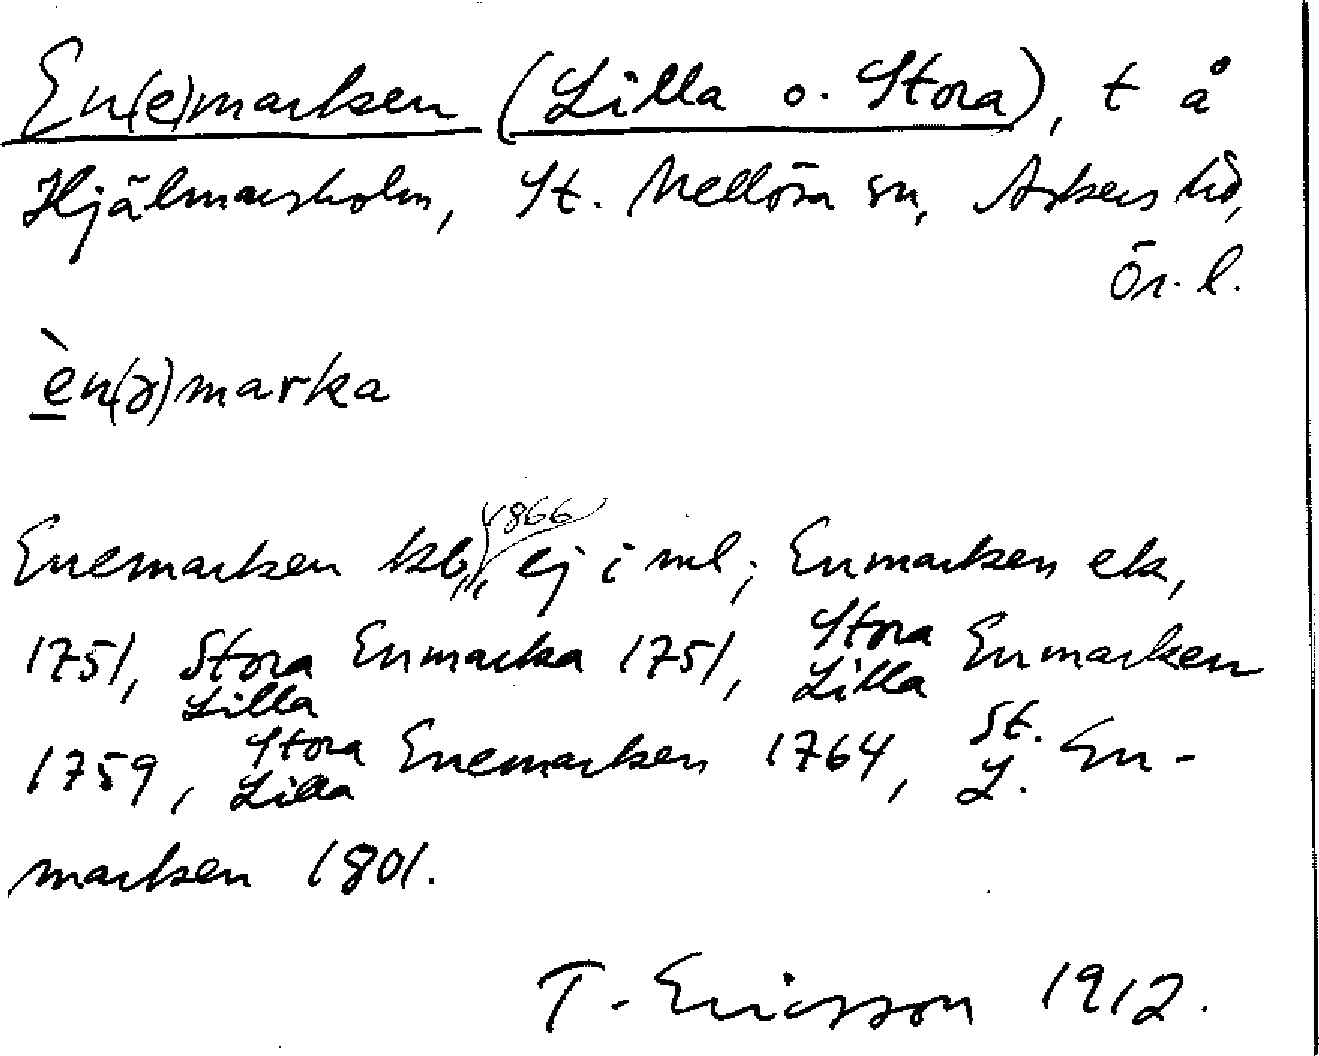 En(e)marken (Lilla o. Stora), t å
Hjälmarsholm, St. Mellösa sn, Askers hd,
Ör. l.
èn(ə)marka
Enemarken kb, 1866 ej i ml; Enmarken ek,
1751, Stora Lilla Enmarka 1751, Stora Lilla Enmarken
1759, Stora Lilla Enemarken 1764, St. L. En-
marken 1801.
T. Ericsson 1912.